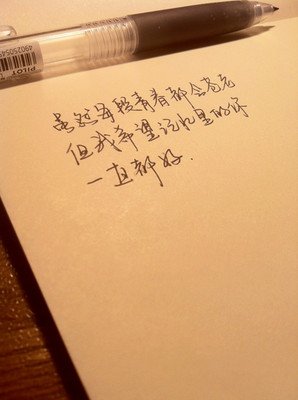 虽然每段青春都会苍老
但我希望记忆里的你
一直都好.
PILOT